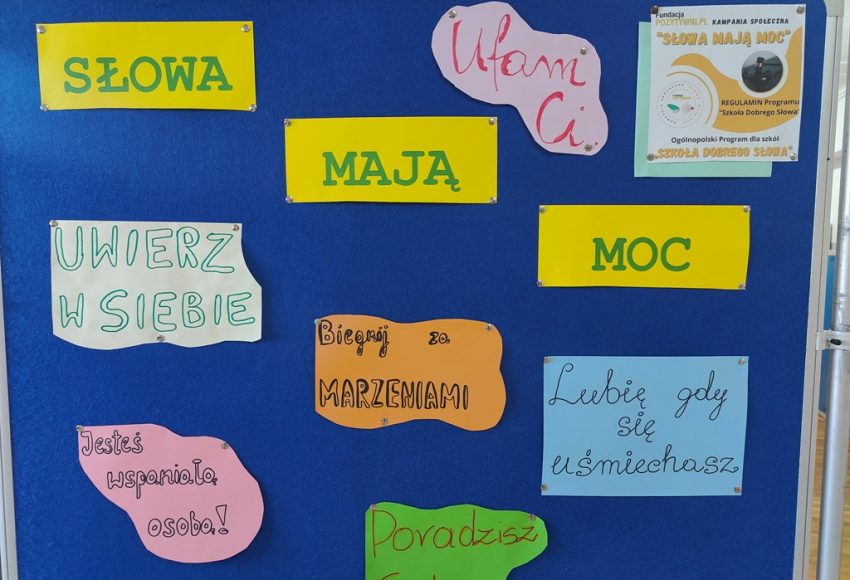 SŁOWA
MAJĄ
MOC
Ufam
Ci.
Fundacja
POZYTYWNI.PL KAMPANIA SPOŁECZNA
"SŁOWA MAJĄ MOC"
REGULAMIN Programu
"Szkoła Dobrego Słowa"
Ogólnopolski Program dla szkół
„SZKOŁA DOBREGO SŁOWA"
UWIERZ
W SIEBIE
Biegnij za
MARZENIAMI
Lubię gdy
się
uśmiechasz
Jesteś
wspaniałą
osobą!
Poradzisz